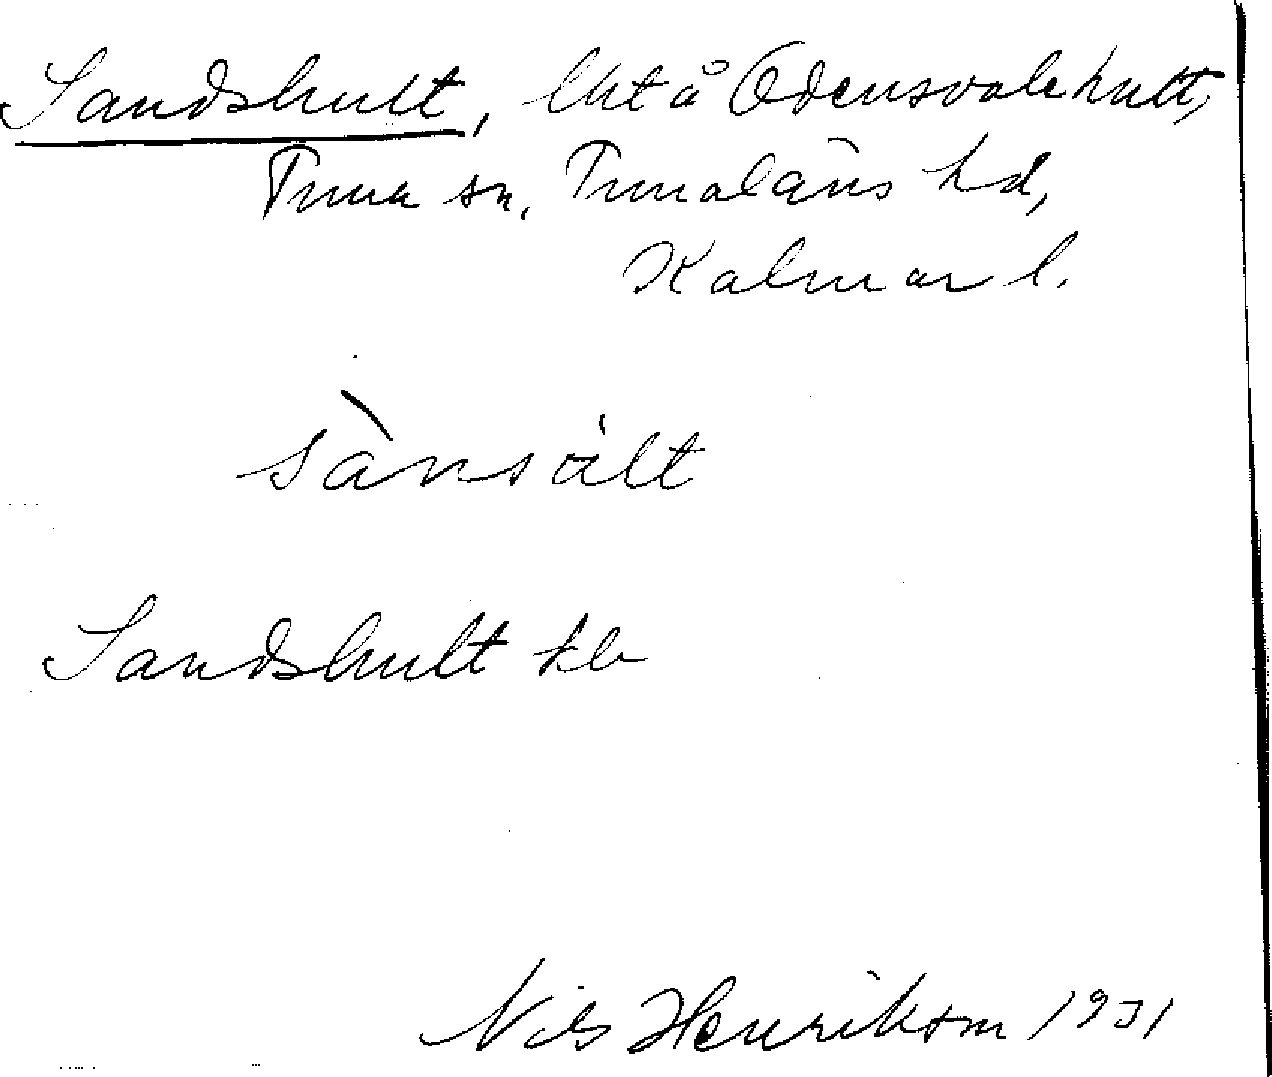 Sandshult, lht å Odensvalehult,
Tuna sn, Tunaläns hd,
Kalmar l.
sànsált
Sandshult kb
Nils Henrikson 1931